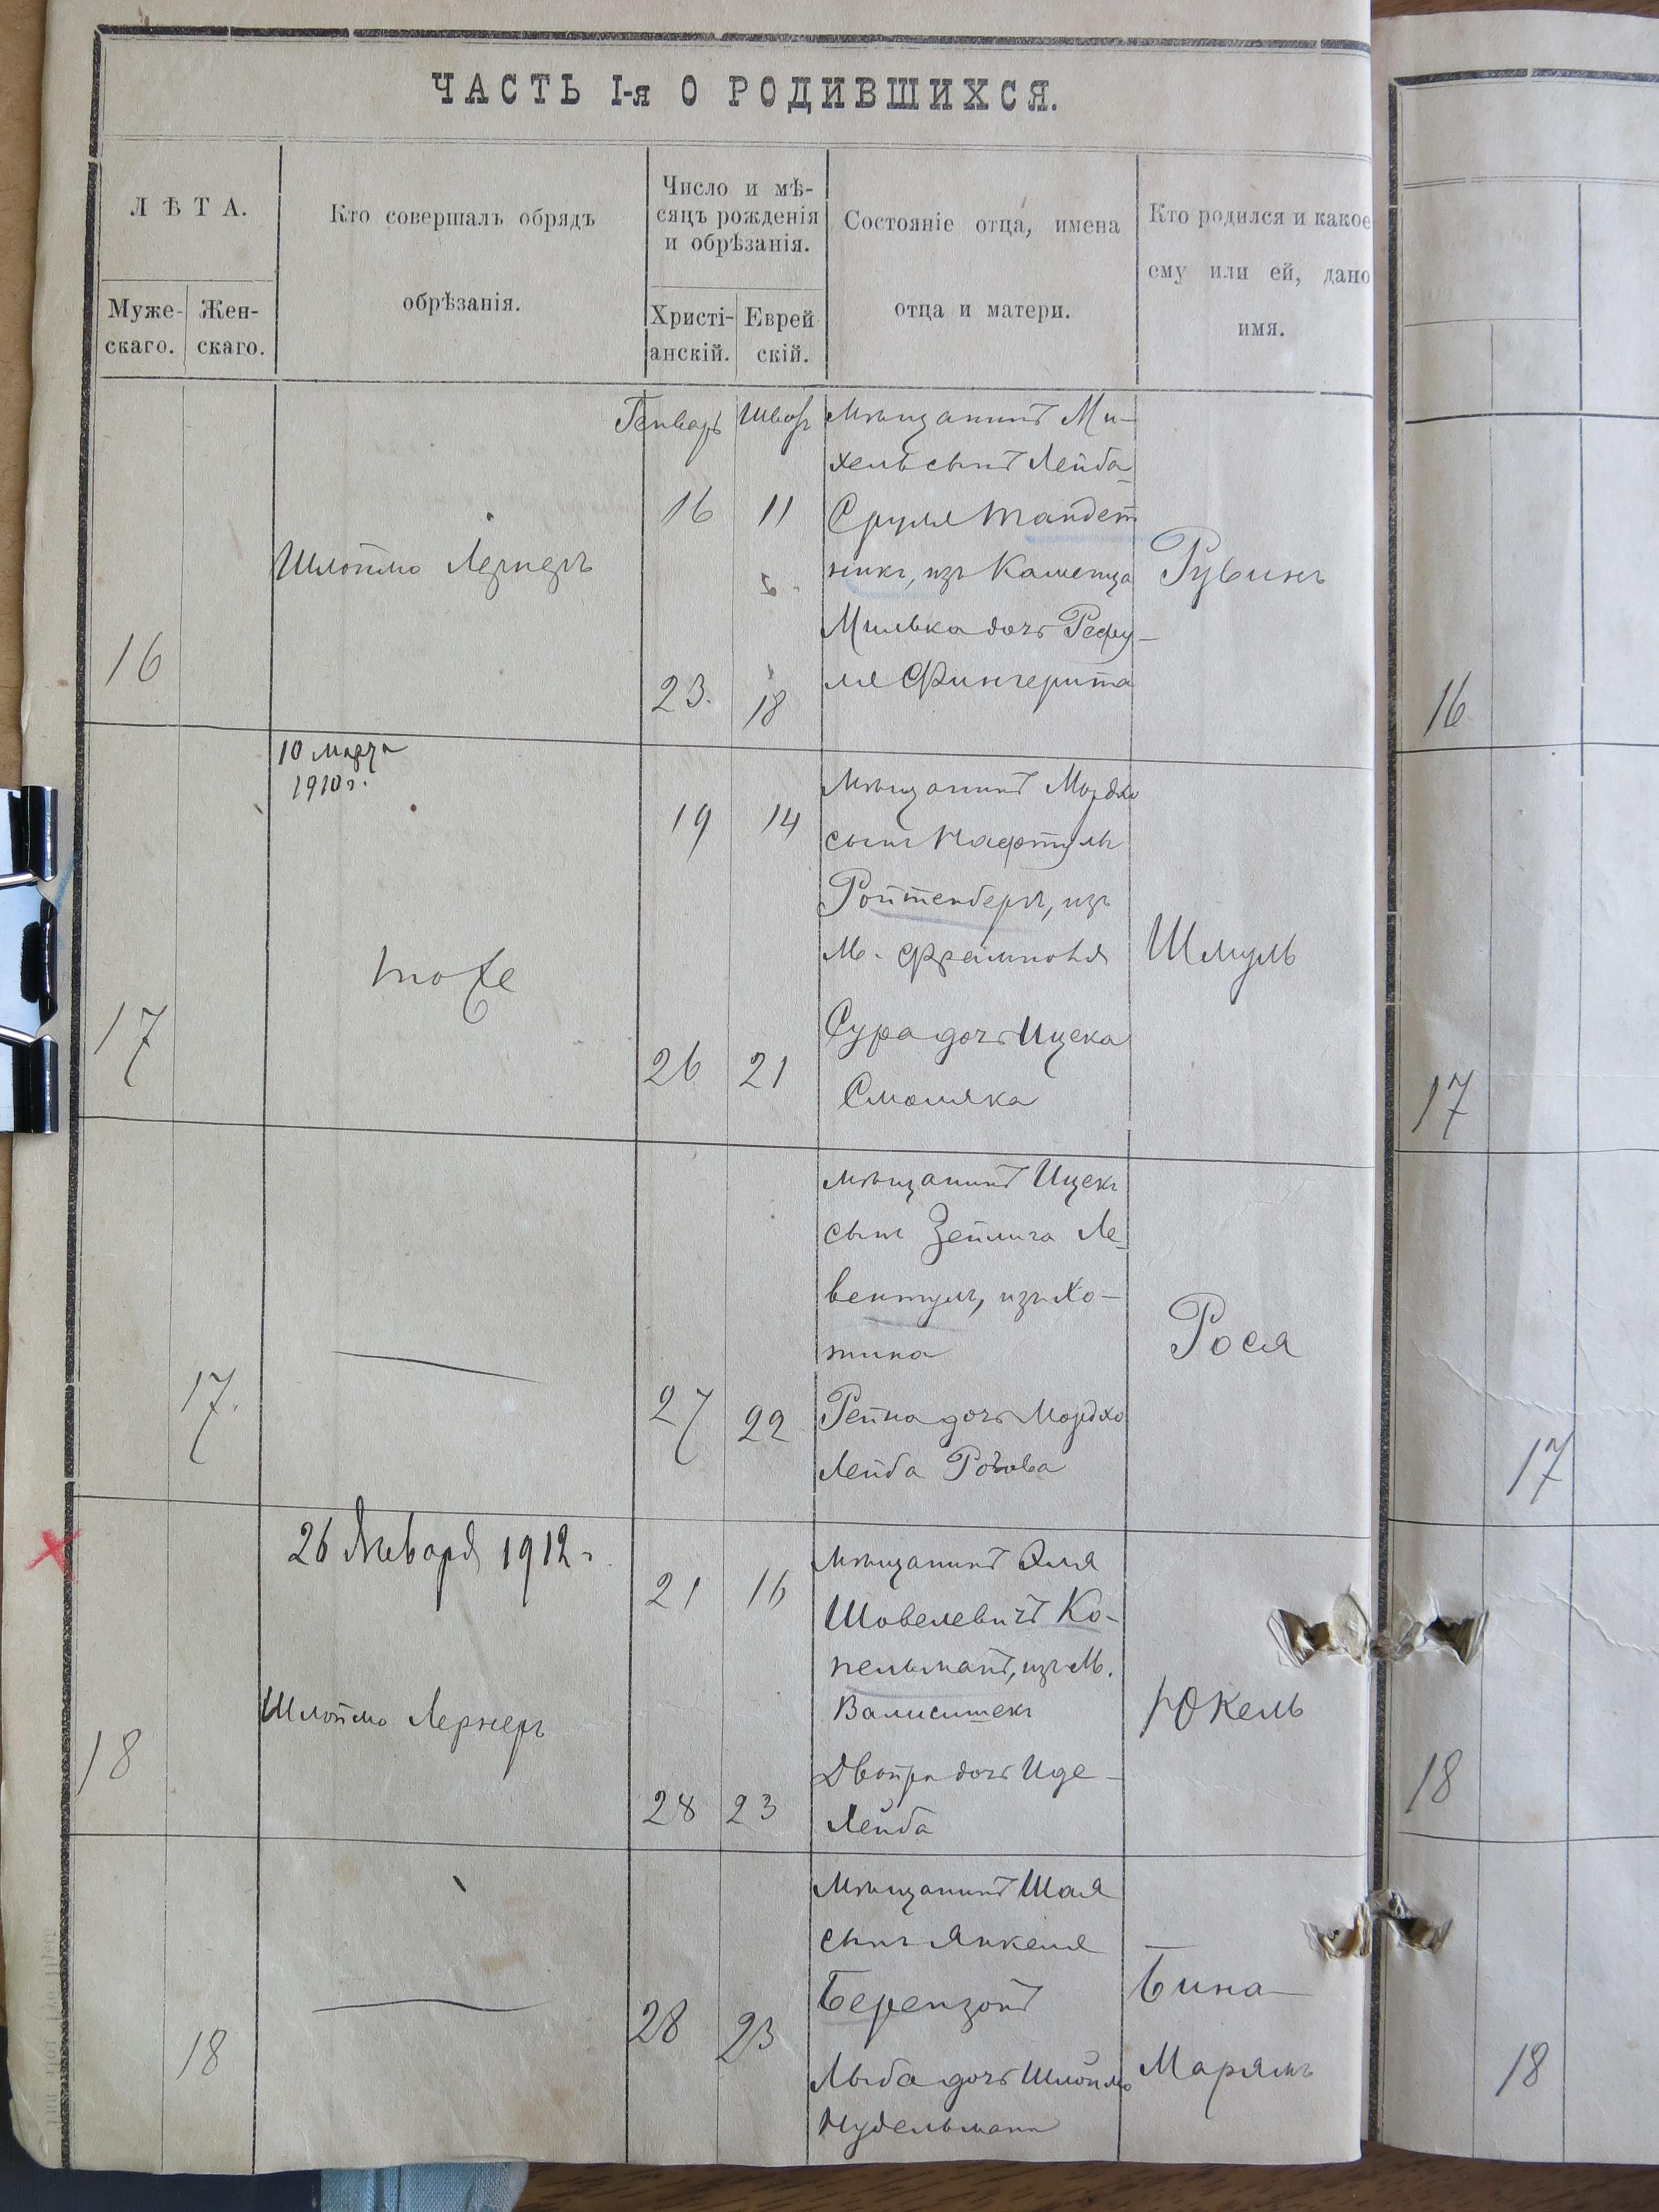 ЧАСТЬ I-я О РОДИВШИХСЯ.
ЛѢТА.
Муже-
скаго.
Жен-
скаго.
Кто совершалъ обрядъ
обрѣзанія.
Число и мѣ-
сяцъ рожденія
и обрѣзанія.
Христі-
анскій.
Еврей
скій.
Состояніе отца, имена
отца и матери.
Кто родился и какое
ему или ей, дано
имя.
16
Шлоймо Лернеръ
Генварь
16
23.
Шватъ
11
18
Мѣщанинъ Ми-
хель сынъ Лейба-
Сруля Тандет
никъ, изъ Каменца
Милька дочь Рефу-
ля Фингерита
Рувинъ
16
17
10 марта
1910 г.
тоже
19
26
14
21
Мѣщанинъ Мордко
сынъ Нафтуль
Ройтенбергъ, изъ
М. Фрамполя
Сура дочь Ицека
Смоляка
Шмуль
17
17.
27
22
Мѣщанинъ Ицекъ
сынъ Зейлига Ле-
вентулъ, изъ Хо-
тина
Рейна дочь Мордко
Лейба
Рося
17
18
26 Января 1912 г.
Шлоймо Лернеръ
21
28
16
23
Мѣщанинъ Эля
Шовелевичъ Ко-
пельманъ, изъ М.
Двойра дочь Иде-
Лейба
Юкель
18
18
28
23
Мѣщанинъ Шая
сынъ Янкеля
Беренzонъ
Лыба дочь Шлоймо
Нудельмана
Бина
Марямъ
18